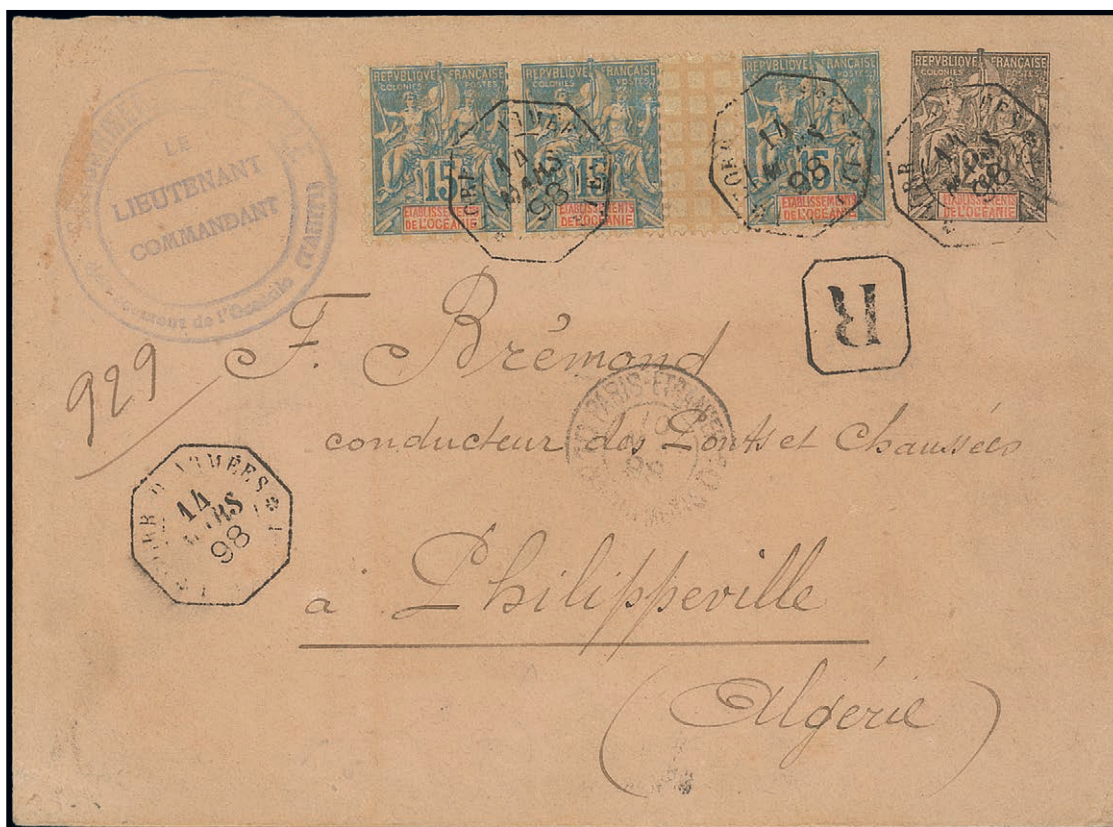 LE
LIEUTENANT
COMMANDANT
de l'Océanie
REPVBLIQVE FRANÇAISE
COLONIES POSTES
15
ETABLISSEMENTS
DE L'OCÉANIE
REPVBLIQVE FRANÇAISE
COLONIES POSTES
15
ETABLISSEMENTS
DE L'OCÉANIE
REPVBLIQVE FRANÇAISE
COLONIES POSTES
15
ETABLISSEMENTS
DE L'OCÉANIE
REPVBLIQVE FRANÇAISE
COLONIES POSTES
25
ETABLISSEMENTS
DE L'OCÉANIE
14
MARS
98
14
98
R
929
F. Brémond
PARIS-ETRANGER
98
conducteur des Ponts et Chaussées
CORR D ARMÉES
14
MARS
98
à Philippeville
(Algérie)